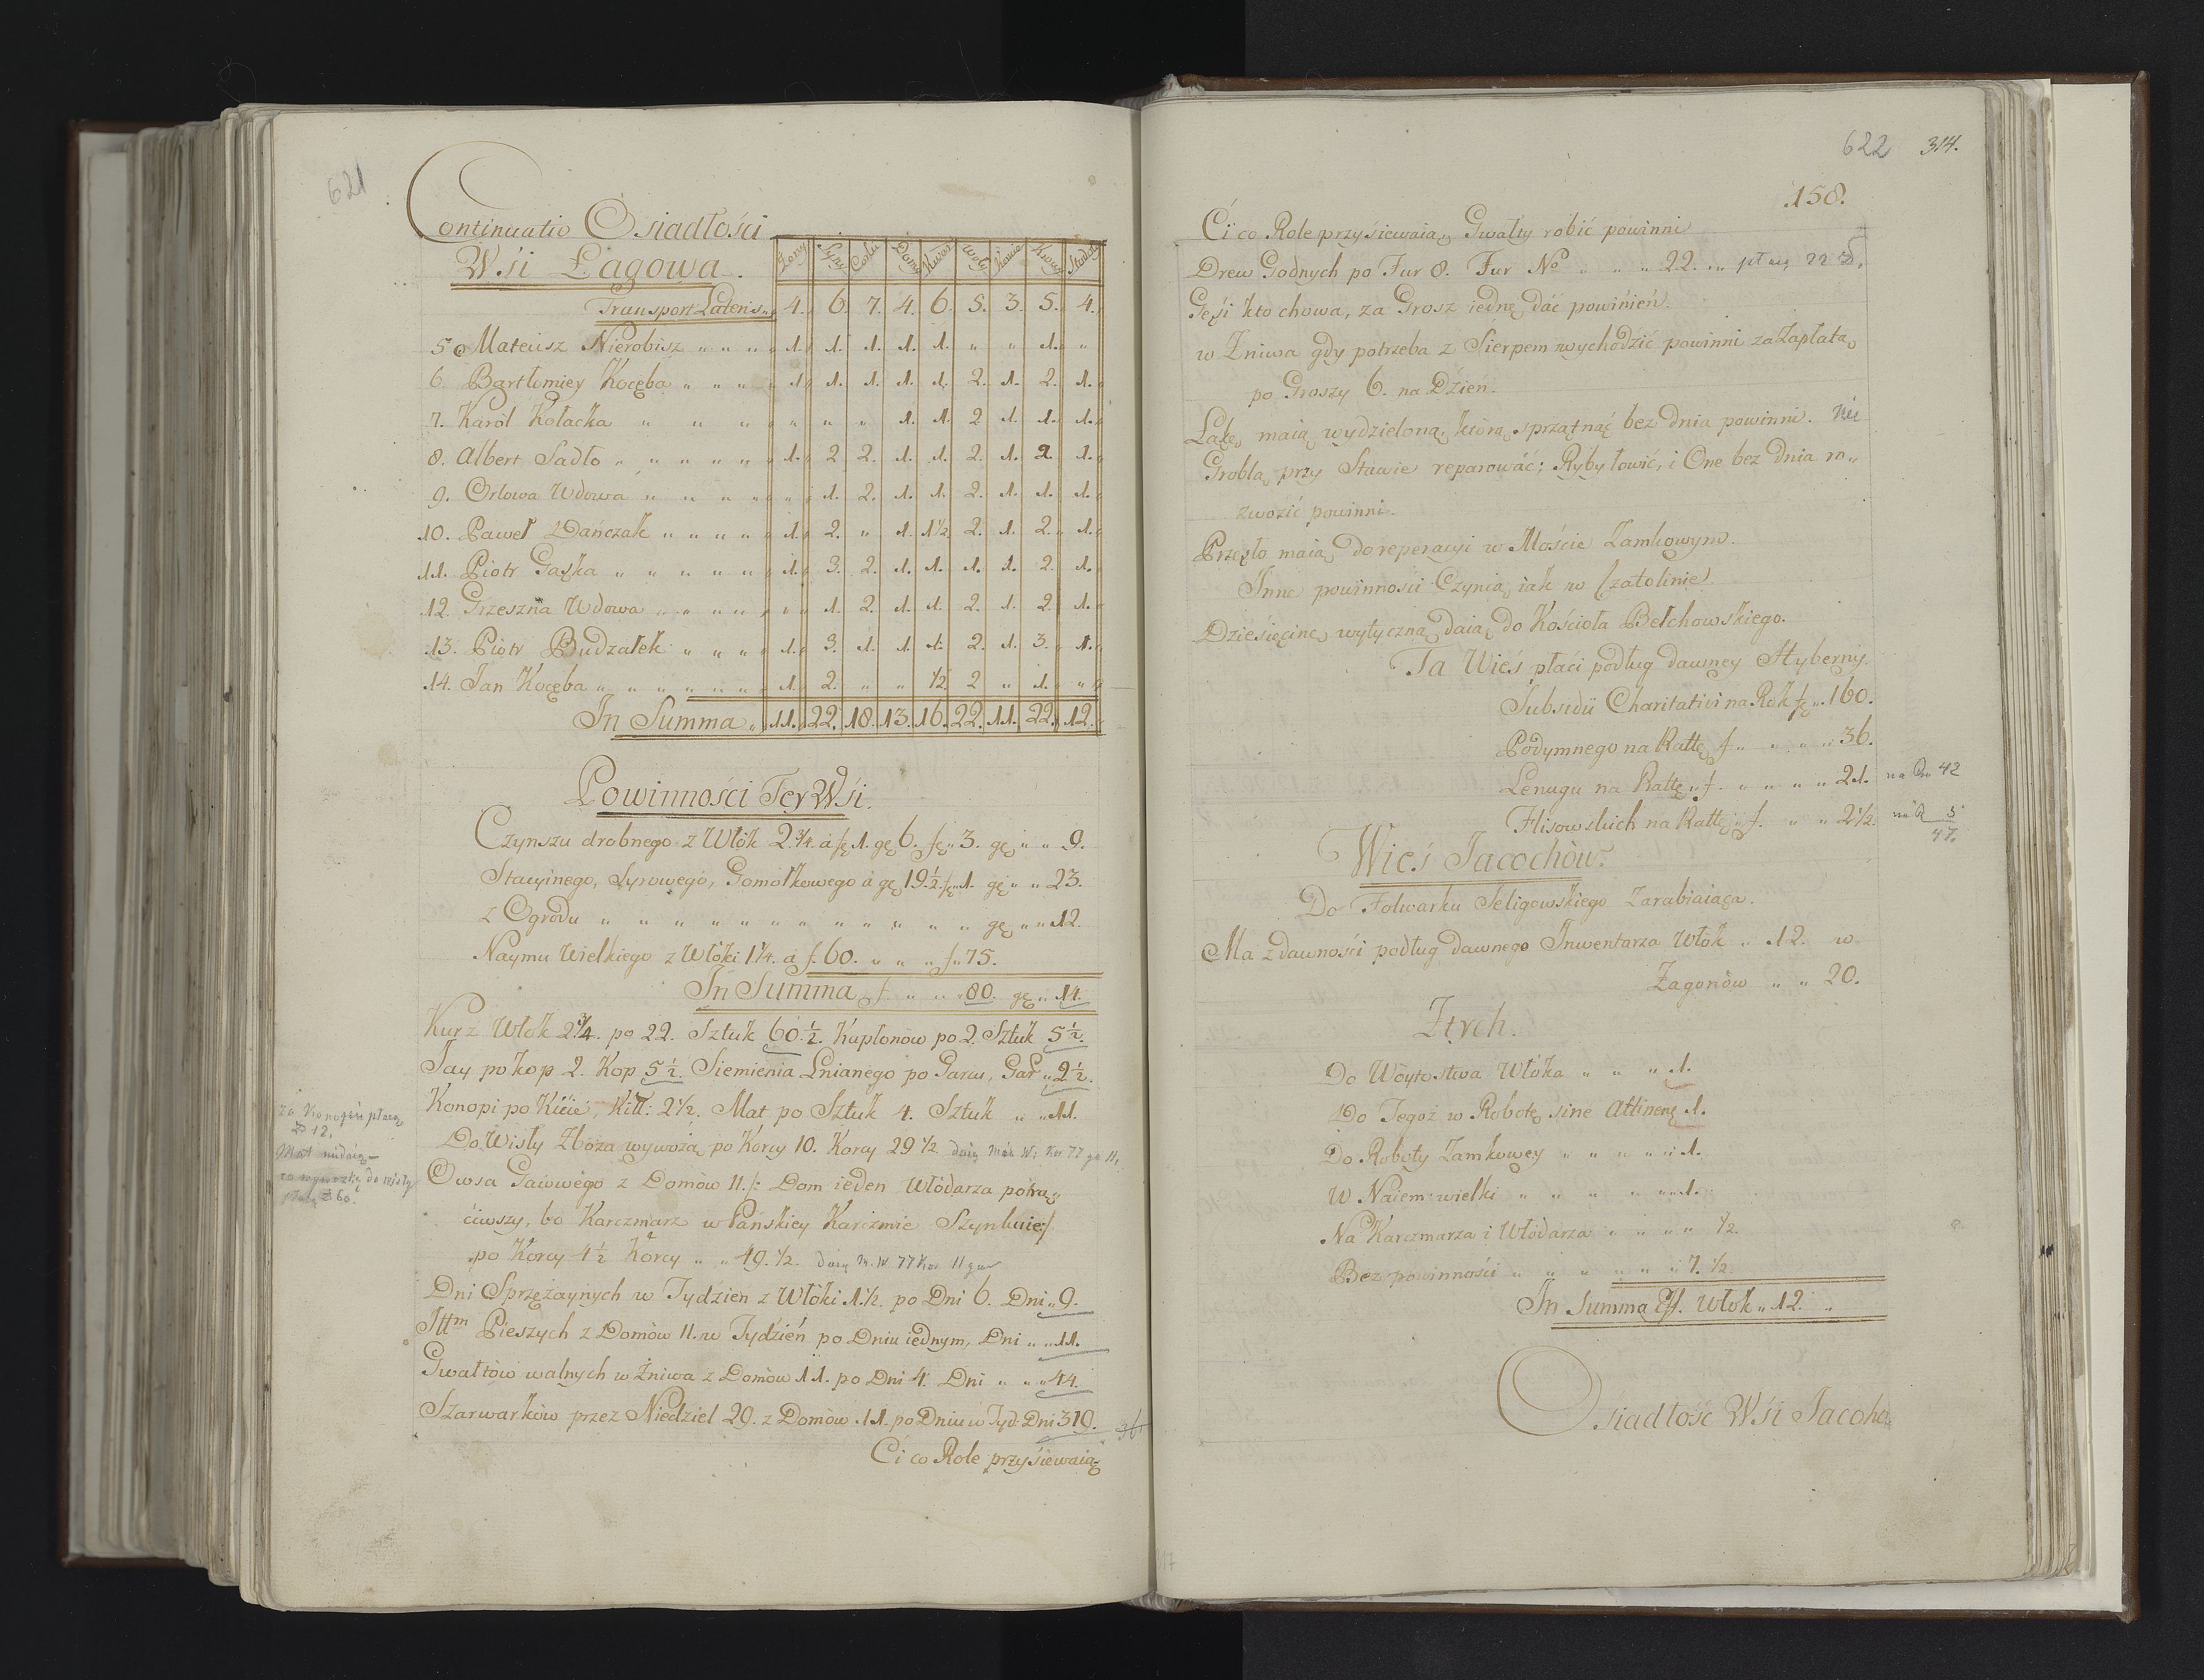 621
Continuatio Osiadłości
Wsi Łagowa.
Żony Syny Córki Domy Kwar. Woły Konie Krowy Stodoły
Transport Lateris „ 4. 6. 7. 4. 6. 5. 3. 5. 4.
5. Mateusz Nierobisz „ „ „ 1. 1. 1. 1. 1. „ „ 1. „
6. Bartłomiey Kocęba „ „ „ 1. 1. 1. 1. 1. 2. 1. 2. 1.
7. Karól Kołacka „ „ „ „ „ „ 1. 1. 2 1. 1. 1.
8. Albert Sadło „ „ „ „ „ 1. 2 2. 1. 1. 2. 1. 2. 1.
9. Orłowa Wdowa „ „ „ „ „ 1. 2. 1. 1. 2. 1. 1. 1.
10. Paweł Dańczak „ „ „ „ 1. 2. „ 1. 1½ 2. 1. 2. 1.
11. Piotr Gąska „ „ „ „ „ 1. 3. 2. 1. 1. 1. 1. 2. 1.
12. Grzeszna Wdowa „ „ „ „ „ 1. 2. 1. 1. 2. 1. 2. 1.
13. Piotr Budzałek „ „ „ 1. 3. 1. 1. 1. 2. 1. 3. 1.
14. Jan Kocęba „ „ „ „ „ „ 1. 2. „ „ ½ 2 „ 1. „
In Summa „ 11. 22. 18. 13. 16. 22. 11. 22. 12.
Powinności Tey Wsi.
Czynszu drobnego z Włók 2.¾. a f 1. gę 6. f „ 3. gę „ „ 9.
Stacyinego, Syrowego, Gomółkowego á gę 19.½. f „ 1. gę „ „ 23.
z Ogrodu „ „ „ „ „ „ „ „ „ „ „ gę „ „ 12.
Naymu Wielkiego z Włóki 1¼. á f. 60. „ „ „ f „ 75.
In Summa f „ „ „ 80. gę „ 14.
Kur z Włok 2¾. po 22. Sztuk 60.½. Kapłonow po 2. Sztuk 5½.
Jay po kop 2. Kop 5½. Siemienia Lnianego po Garcu, Gar „ 2½.
Konopi po Kicie, Kitt: 2½. Mat po Sztuk 4. Sztuk „ „ 11.
za Konopie płacą
zł 12.
Mat niedaią
za wywozkę do wisły
płacą zł 60.
Do Wisły Zboża wywożą po Korcy 10. Korcy 29½.
Owsa Gaiowego z Domów 11. /: Dom ieden Włódarza potrą„
ciwszy, bo Karczmarz w Pańskiey Karczmie Szynkuie:/
po Korcy 4½ Korcy „ „ 49.½.
Dni Sprzężaynych w Tydzień z Włóki 1.½. po Dni 6. Dni „ 9.
Ittm Pieszych z Domów 11. w Tydzień po Dniu iednym, Dni „ „ 11.
Gwałtów walnych w Żniwa z Domów 11. po Dni 4. Dni „ „ „ 44.
Szarwarków przez Niedziel 29. z Domów 11. po Dniu w Tyd: Dni 319.
Ci co Role przysiewaią
622 314.
158.
Ci co Role przysiewaią, Gwałty robić powinni
Drew Godnych po Fur 8. Fur No „ „ „ 22. „ płacą 22 zł.
Gęsi kto chowa, za Grosz iednę dáć powinień.
w Żniwa gdy potrzeba z Sierpem wychodzić powinni za Zapłatą
po Groszy 6. na Dzień.
Łąkę maią wydzieloną, którą sprzątnąć bez dnia powinni. nie
Groblą przy Stawie reparować; Ryby łowić, i One bez Dnia ro„
zwozić powinni.
Przęsło maią do reperacyi w Moście Zamkowym.
Inne powinności Czynią iak w Czatolinie.
Dziesięcinę wytyczną daią do Kościoła Bełchowskiego.
Ta Wieś płaci podług dawney Hyberny.
Subsidii Charitativi na Rok f „ 160.
Podymnego na Rattę f „ „ „ „ 36.
Lenugu na Rattę „ f. „ „ „ „ 21. 42
Flisowskich na Rattę „ f. „ „ 2½. 5
47.
Wieś Jacochów.
Do Folwarku Seligowskiego Zarabiaiąca.
Ma z dawności podług dawnego Inwentarza Włók „ 12. w
Zagonów „ „ 20.
Z tych.
Do Woytostwa Włóka „ „ „ 1.
Do Tegoż w Robotę sine Attinenę 1.
Do Roboty Zamkowey „ „ „ „ „ 1.
W Naiem wielki „ „ „ „ „ „ 1.
Na Karczmarza i Włódarza „ „ „ „ ½.
Bez powinności „ „ „ „ „ „ 7.½.
In Summa Włók „ 12. „
Osiadłość Wsi Jacoho„